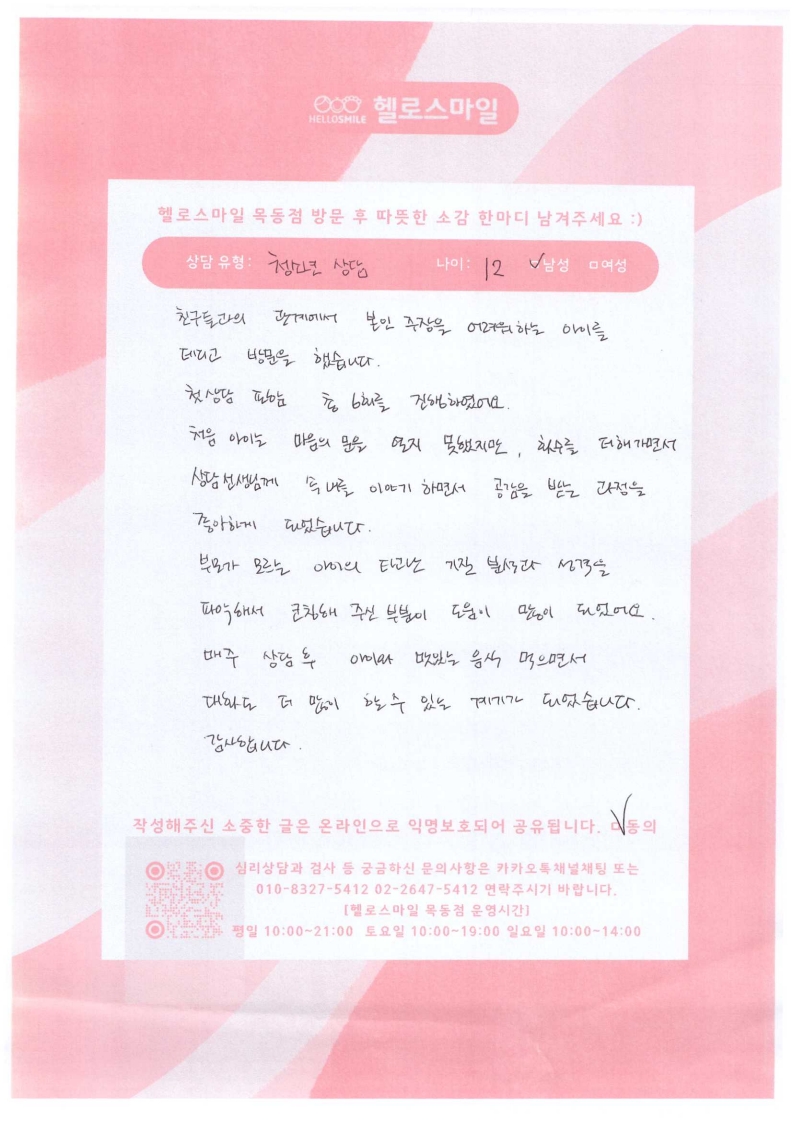 HELLOSMILE 헬로스마일
헬로스마일 목동점 방문 후 따뜻한 소감 한마디 남겨주세요 :)
상담 유형: 청소년 상담 나이: 12 ✓남성 □여성
친구들과의 관계에서 본인 주장을 어려워하는 아이를
데리고 방문을 했습니다.
첫상담 포함 총 6회를 진행하였어요.
처음 아이는 마음의 문을 열지 못했지만, 회수를 더해가면서
상담선생님께 속내를 이야기 하면서 공감을 받는 과정을
좋아하게 되었습니다.
부모가 모르는 아이의 타고난 기질 분석과 성격을
파악해서 코칭해 주신 부분이 도움이 많이 되었어요.
매주 상담 후 아이와 맛있는 음식 먹으면서
대화도 더 많이 할 수 있는 계기가 되었습니다.
감사합니다.
작성해주신 소중한 글은 온라인으로 익명보호되어 공유됩니다. ✓동의
심리상담과 검사 등 궁금하신 문의사항은 카카오톡채널채팅 또는
010-8327-5412 02-2647-5412 연락주시기 바랍니다.
[헬로스마일 목동점 운영시간]
평일 10:00~21:00 토요일 10:00~19:00 일요일 10:00~14:00